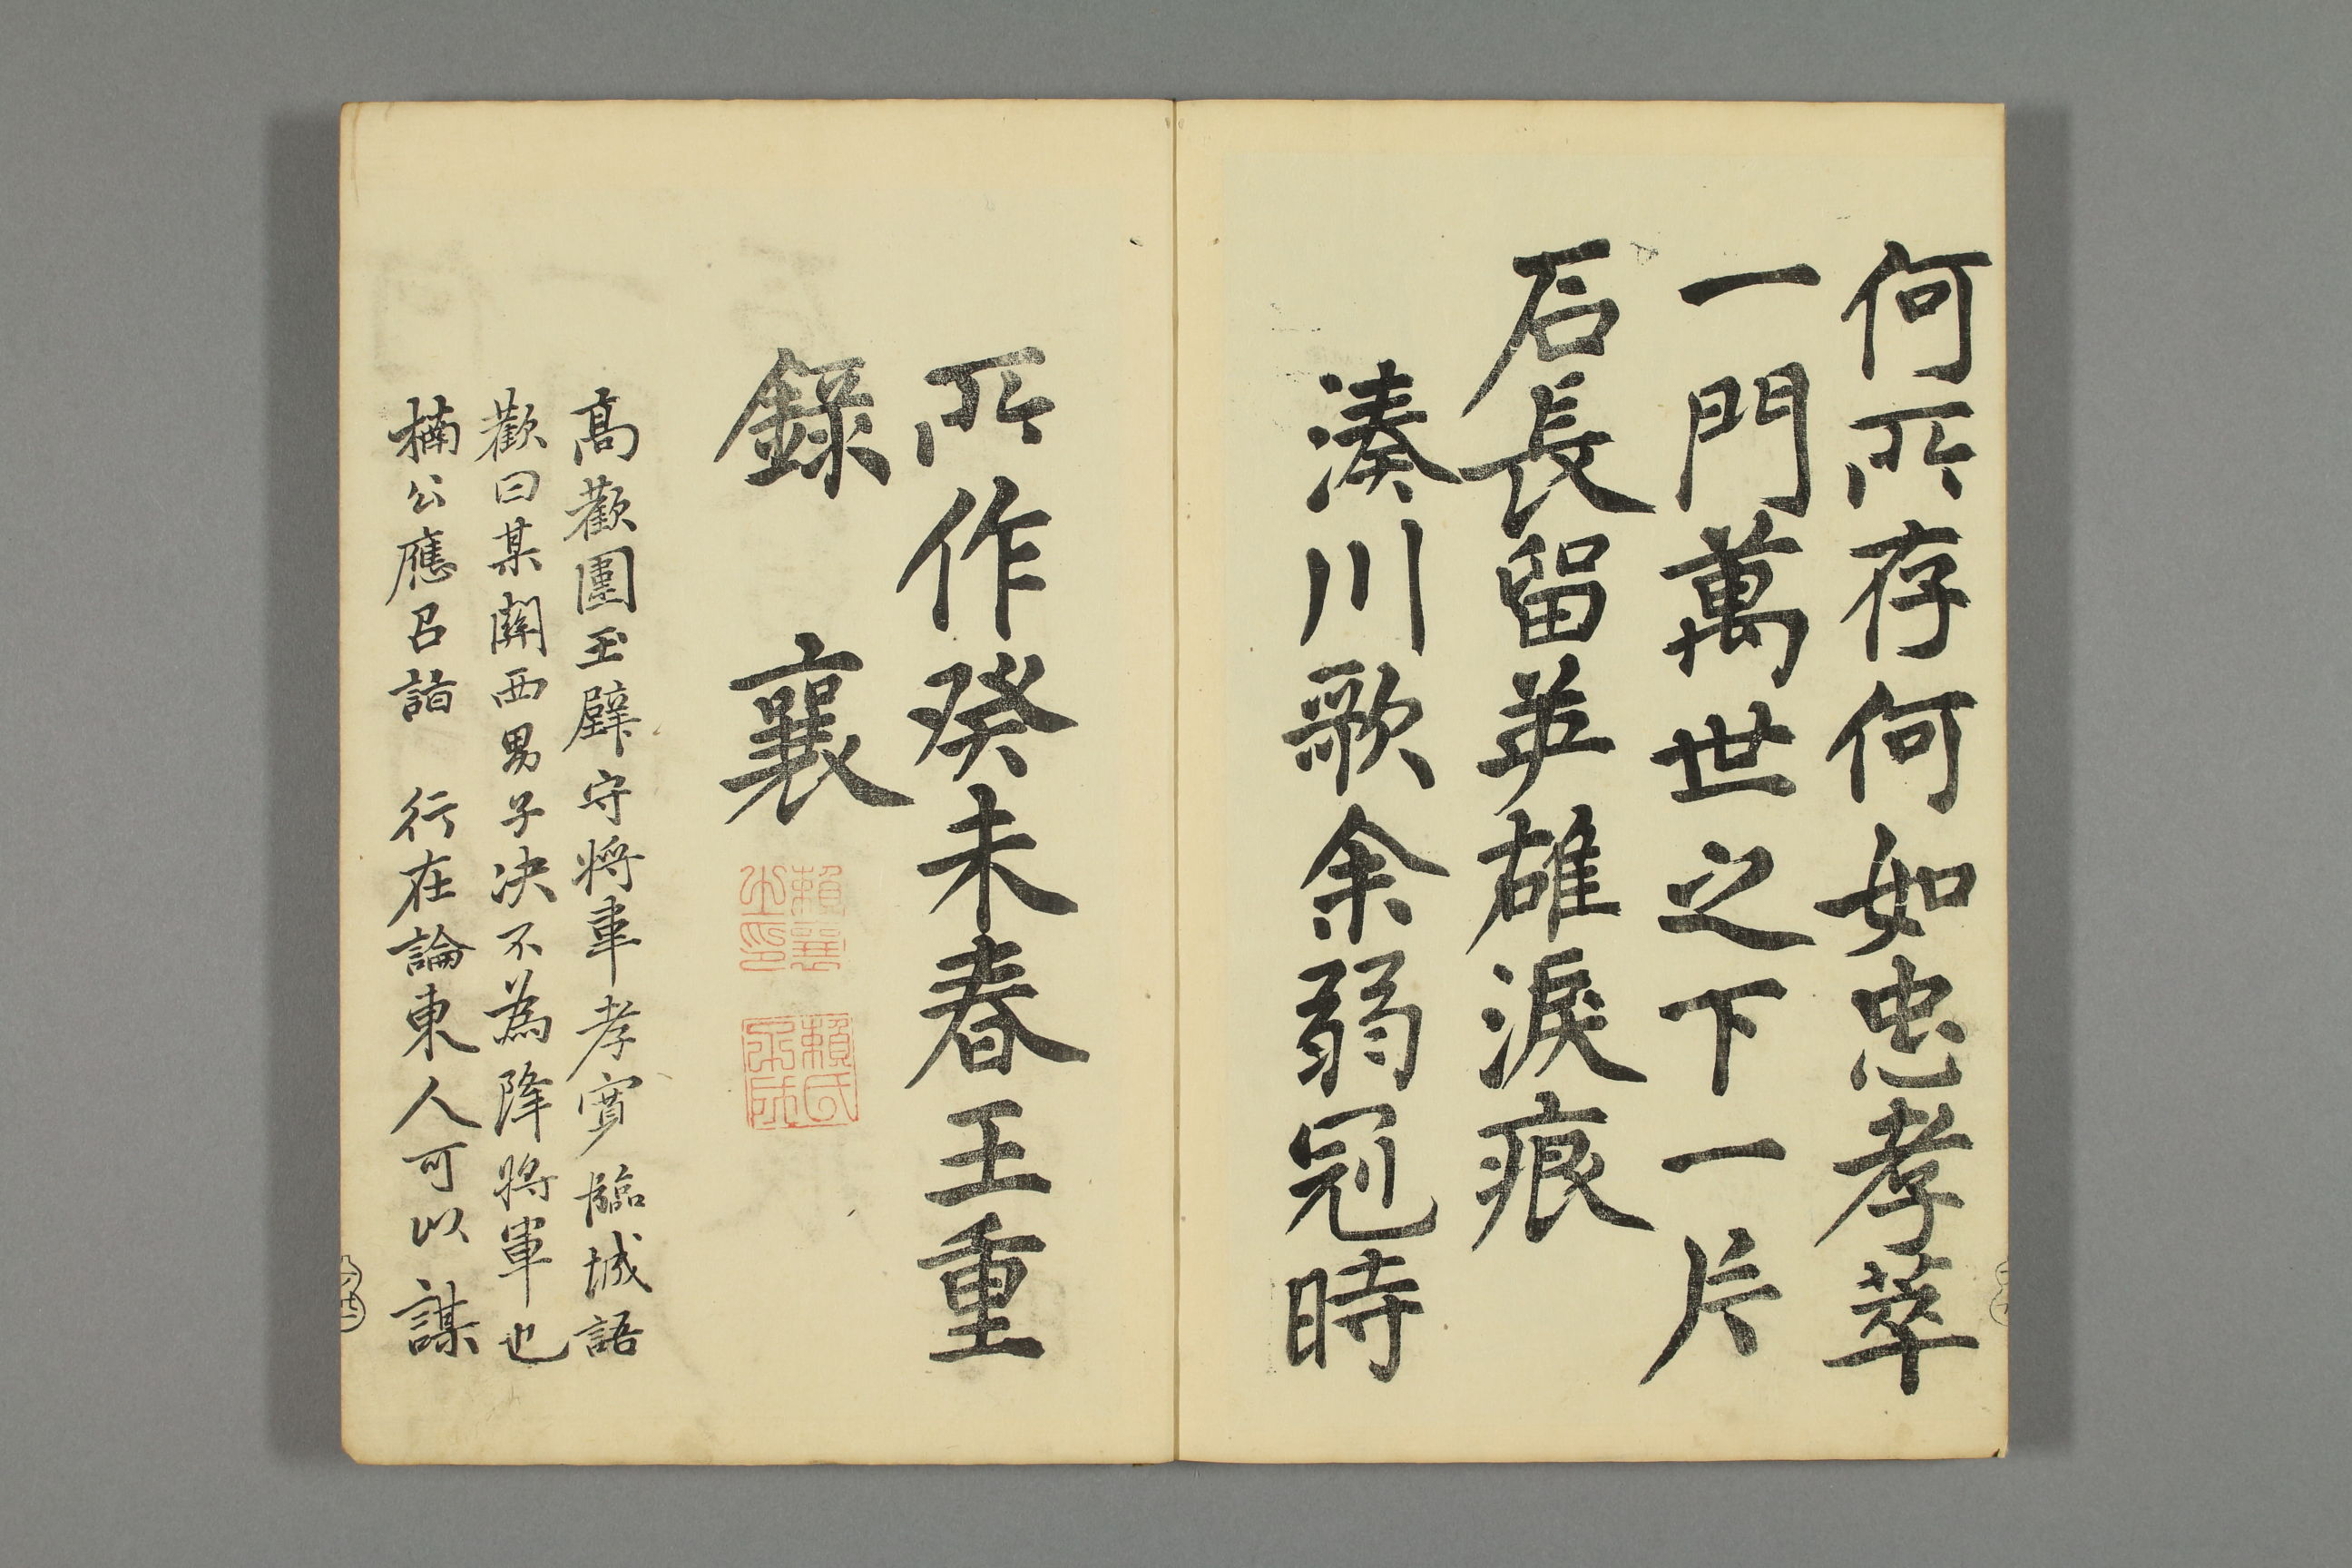 何所存何如忠孝萃
一門萬世之下一片
石長留英雄淚痕
湊川歌余弱冠時
所作癸未春王重
錄　襄
賴襄之印
賴氏子成
高歡圍玉壁守將韋孝寬臨城語
歡曰某關西男子決不為降將軍也
楠公應召詣　行在論東人可以謀